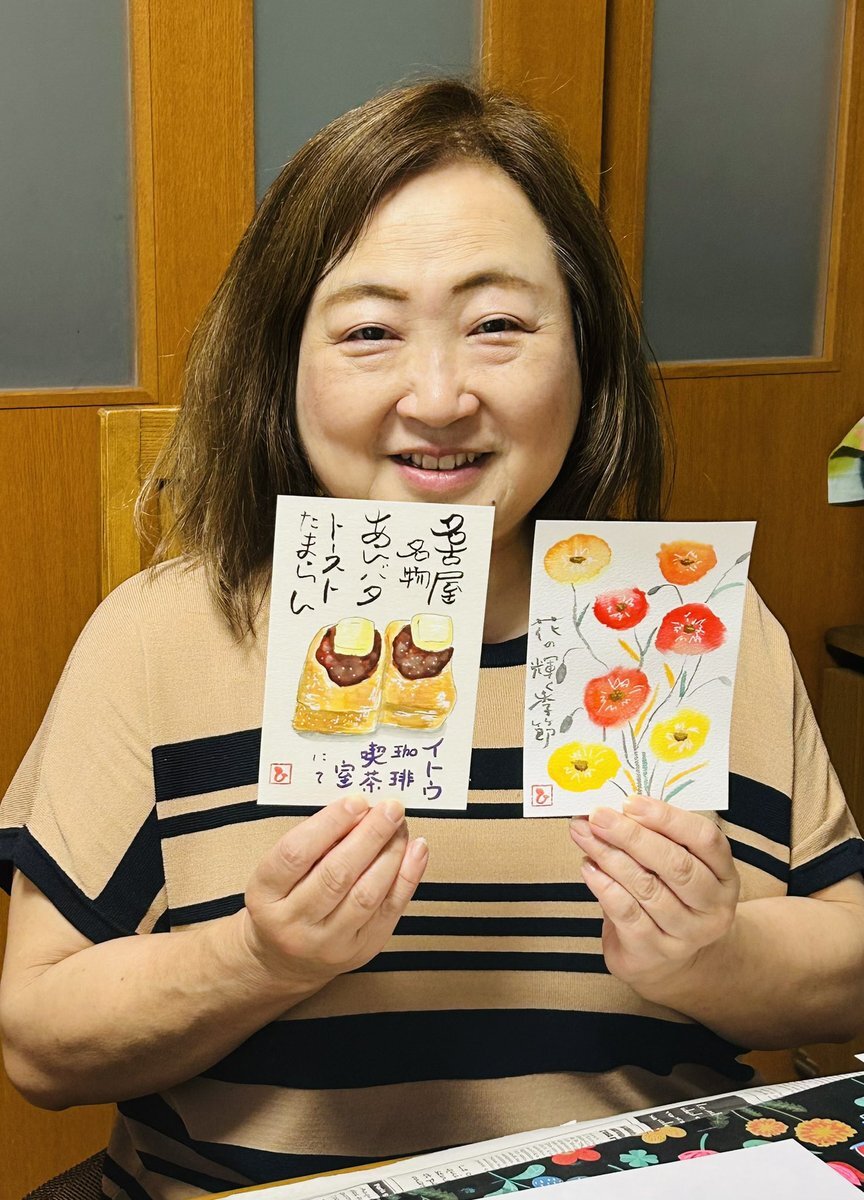 名古屋
名物
あんバタ
トースト
たまらん
イトウ
珈琲
喫茶
室
にて
ひ
花の輝く季節
ひ